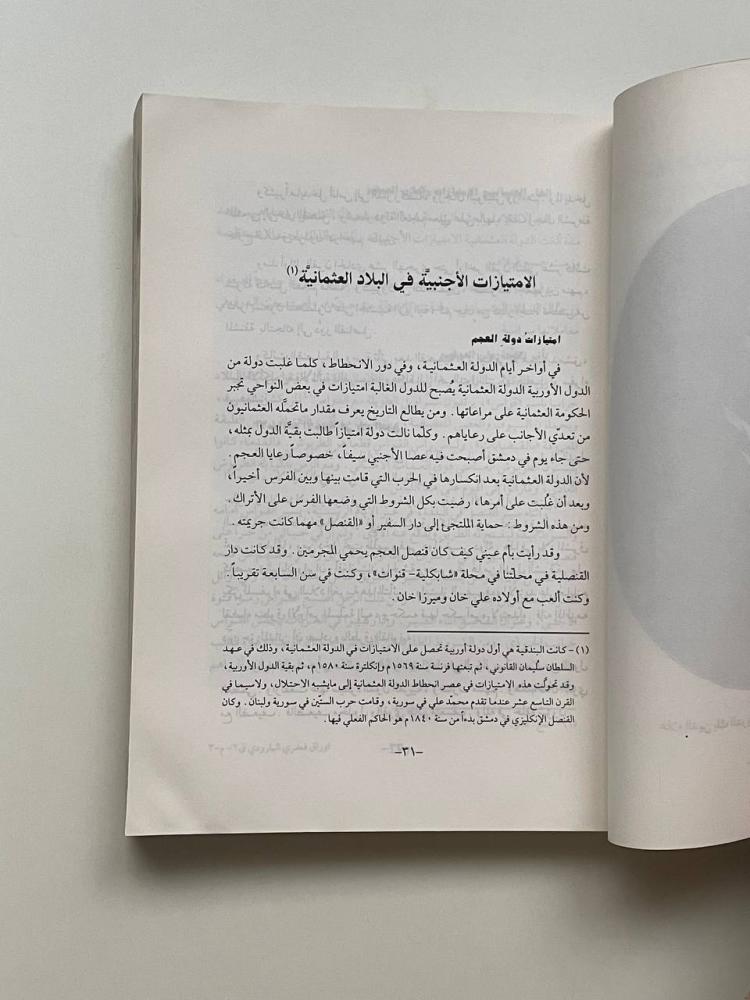 الامتيازات الأجنبيَّة في البلاد العثمانيَّة (١)
امتيازات دولة العجم
في أواخر أيام الدولة العثمانية، وفي دور الانحطاط، كلما غلبت دولة من
الدول الأوربية الدولة العثمانية يُصبح للدول الغالبة امتيازات في بعض النواحي تجبر
الحكومة العثمانية على مراعاتها. ومن يطالع التاريخ يعرف مقدار ماتحمَّله العثمانيون
من تعدّي الأجانب على رعاياهم. وكلّما نالت دولة امتيازاً طالبت بقيَّة الدول بمثله،
حتى جاء يوم في دمشق أصبحت فيه عصا الأجنبي سيفاً، خصوصاً رعايا العجم.
لأن الدولة العثمانية بعد انكسارها في الحرب التي قامت بينها وبين الفرس أخيراً،
وبعد أن غُلبت على أمرها، رضيت بكل الشروط التي وضعها الفرس على الأتراك.
ومن هذه الشروط: حماية الملتجئ إلى دار السفير أو «القنصل» مهما كانت جريمته.
وقد رأيت بأم عيني كيف كان قنصل العجم يحمي المجرمين. وقد كانت دار
القنصلية في محلتنا في محلة «شابكلية- قنوات»، وكنت في سن السابعة تقريباً.
وكنت ألعب مع أولاده علي خان وميرزا خان.
(١) - كانت البندقية هي أول دولة أوربية تحصل على الامتيازات في الدولة العثمانية، وذلك في عهد
السلطان سليمان القانوني، ثم تبعتها فرنسة سنة ١٥٦٩م وإنكلترة سنة ١٥٨٠م، ثم بقية الدول الأوربية،
وقد تحولّت هذه الامتيازات في عصر انحطاط الدولة العثمانية إلى مايشبه الاحتلال، ولاسيما في
القرن التاسع عشر عندما تقدم محمّد علي في سورية، وقامت حرب الستّين في سورية ولبنان. وكان
القنصل الإنكليزي في دمشق بدءاً من سنة ١٨٤٠م هو الحاكم الفعلي فيها.
-٣١-